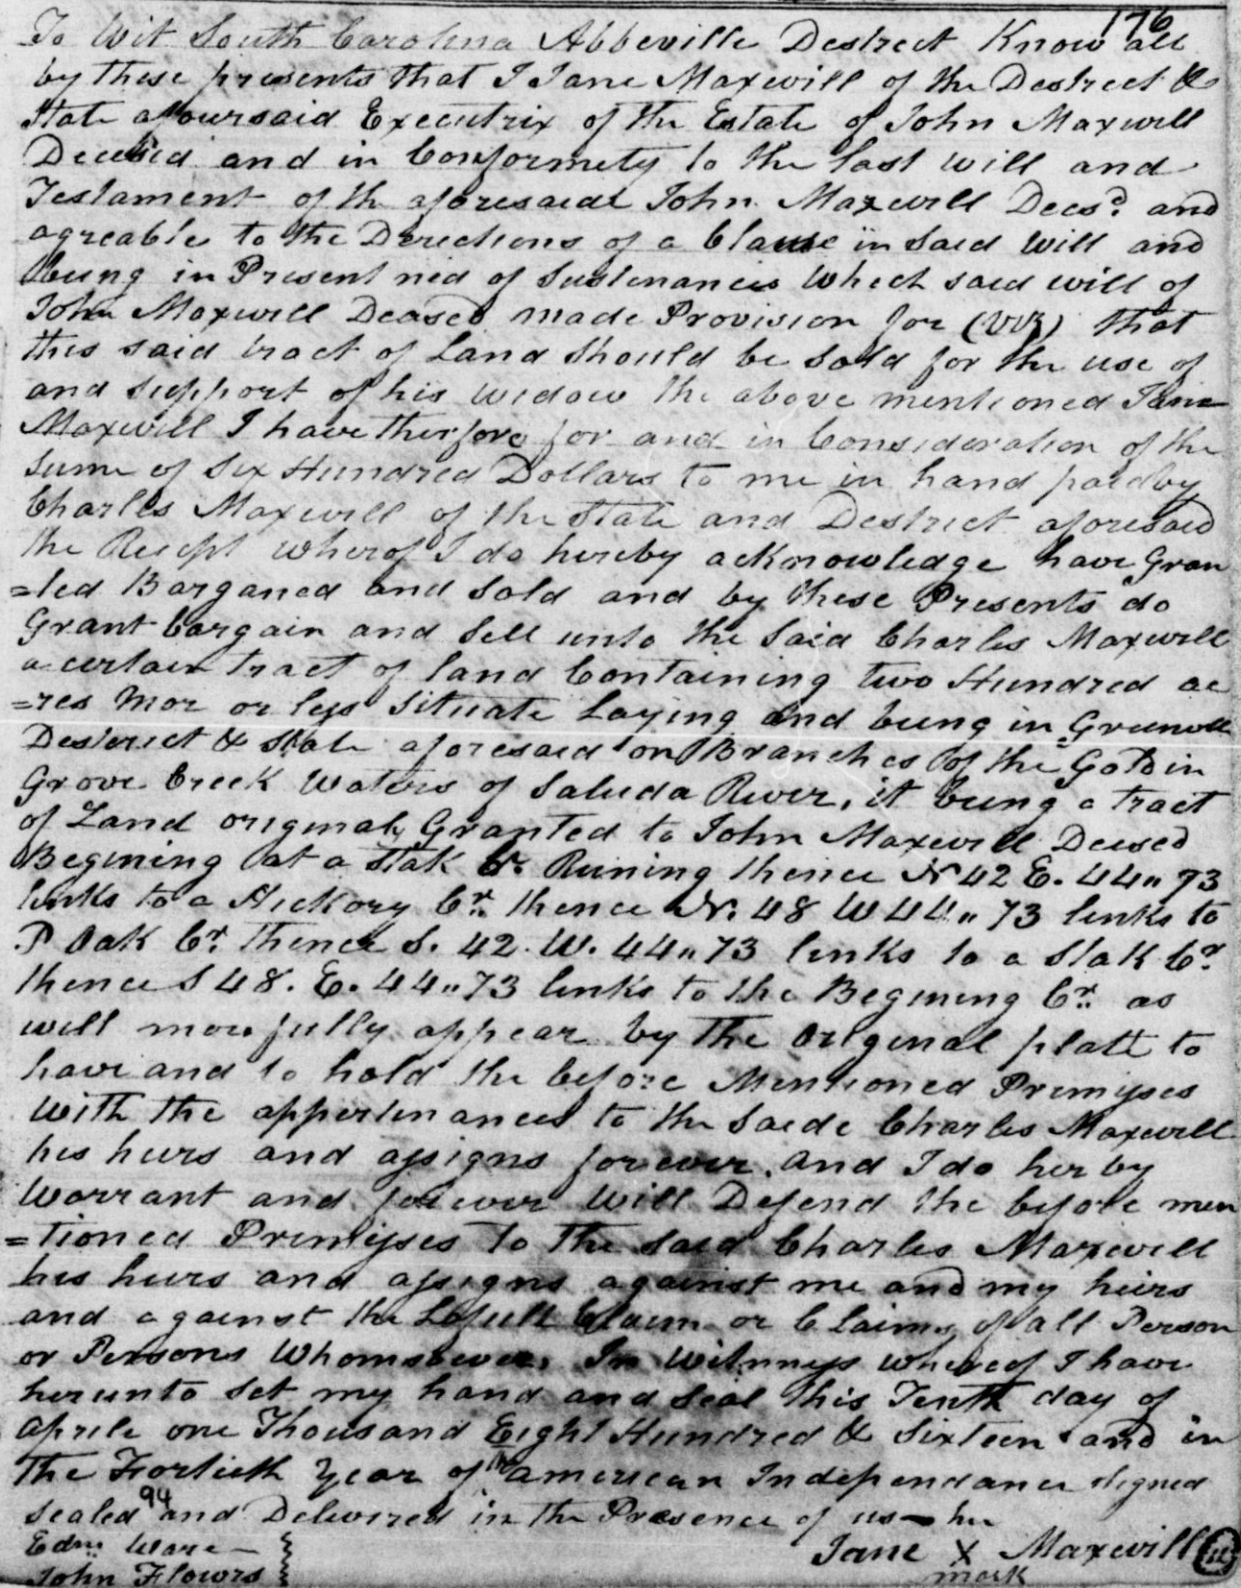 176
To Wit South Carolina Abbeville Destrect Know all
by these presents that I Jane Maxwill of the Destrect &
State afoursaid Executrix of the Estate of John Maxwill
Decesed and in Conformety to the last will and
Testament of th aforesaide John Maxwill Decsd. and
agreable to the Derections of a Clause in Said Will and
being in Present nied of Sustenances Which said will of
John Maxwill Deased made Provision for (viz) that
this said tract of Land Should be Sold for the use of
and support of his widow the above mentioned Jane
Maxwill I have therfore for and in Consideration of the
Sume of Six Hundred Dollars to me in hand paid by
Charles Maxwill of the State and Destrect aforesaid
the Recipt wherof I do hereby acknowledge have Gran
=ted Barganed and Sold and by these Presents do
Grant bargain and Sell unto the Said Charles Maxwill
a certain tract of land Containing two Hundred ac
=res Mor or less Situate Laying and being in Grenvill
Desterict & State aforesaid on Branches of the Goldin
Grove Creek Waters of Saluda River, it being a tract
of Land originaly Granted to John Maxwill Deased
Begining at a Stak Cr. Runing thence N 42 E. 44" 73
links to a Hickory Cr. thence N. 48 W 44" 73 links to
P Oak Cr. thence S. 42. W. 44" 73 links to a Stak Cr.
thence S 48. E. 44" 73 links to the Begining Cr. as
will more fully appear by the Original platt to
have and to hold the before Mentioned Premises
With the appertinances to the Saide Charles Maxwill
his heirs and assigns forever. and I do herby
Warrant and forever Will Defend the before men
=tioned Premises to the Said Charles Maxwill
his heirs and assigns against me and my heirs
and against the Lafull Claim or Claims of all Person
or Persons Whomsoever. In Witnness whereof I have
herunto Set my hand and Seal this Tenth day of
Aprile one Thousand Eight Hundred & Sixteen and in
the Fortieth Year of the American Independance signed
94
Sealed and Delivered in the Presence of us her
Edm. Ware
Jane X Maxwill
John Flowrs
mark